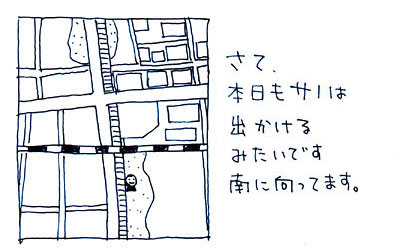 さて、
本日もサノは
出かける
みたいです
南に向ってます。